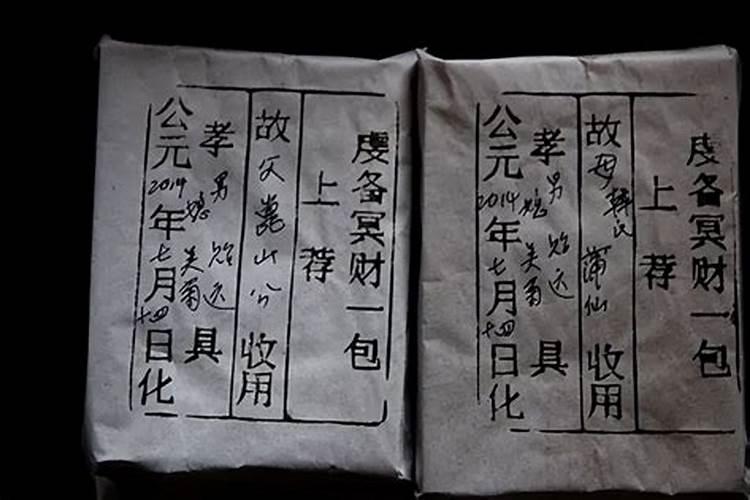 虔备冥财一包
上荐
故父 山公 收用
孝男 贻运 具
媳 美菊
公元2014年七月十四日化
虔备冥财一包
上荐
故母韩氏 蒲仙 收用
孝男 贻运 具
媳 美菊
公元2014年七月十四日化